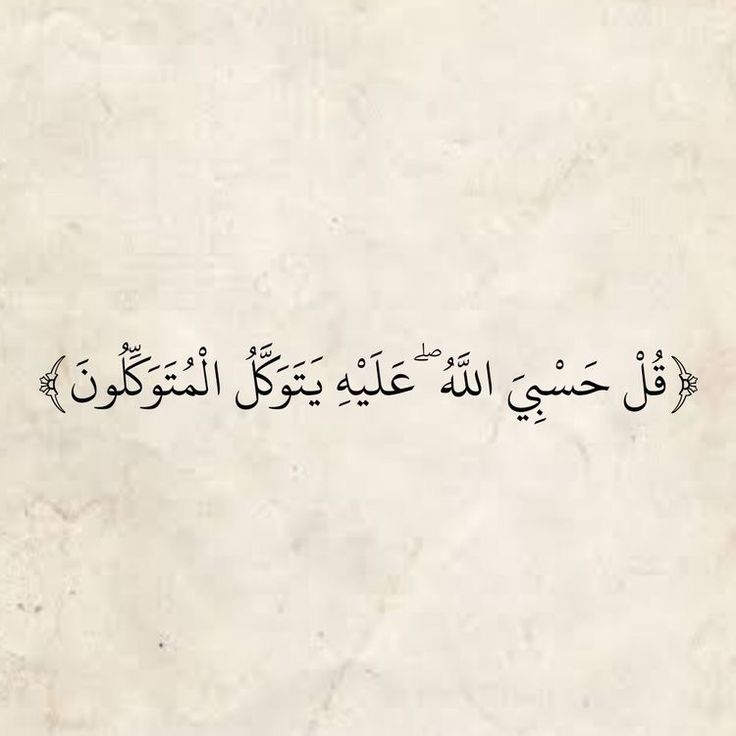 ﴿قُلْ حَسْبِيَ اللَّهُ ۖ عَلَيْهِ يَتَوَكَّلُ الْمُتَوَكِّلُونَ﴾